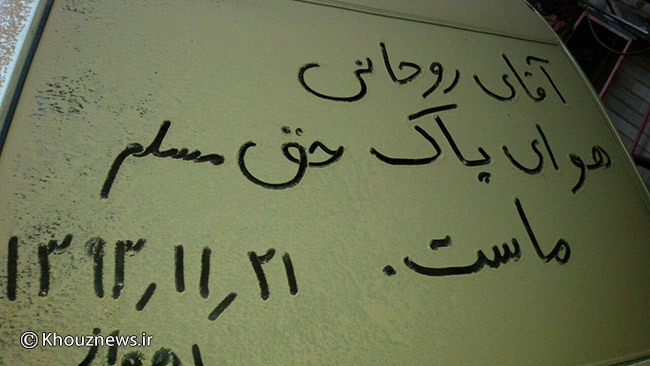 آقای روحانی
هوای پاک حق مسلم
ماست.
۱۳۹۳/۱۱/۲۱
© Khouznews.ir